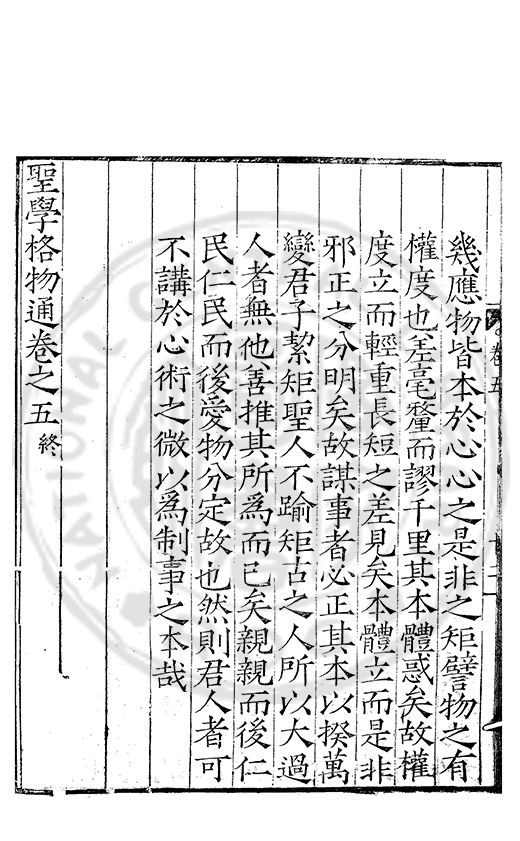 幾應物皆本於心心之是非之矩譬物之有
權度也差毫釐而謬千里其本體惑矣故權
度立而輕重長短之差見矣本體立而是非
邪正之分明矣故謀事者必正其本以揆萬
變君子絜矩聖人不踰矩古之人所以大過
人者無他善推其所爲而已矣親親而後仁
民仁民而後愛物分定故也然則君人者可
不講於心術之微以爲制事之本哉
聖學格物通卷之五終
卷五
NATIONAL